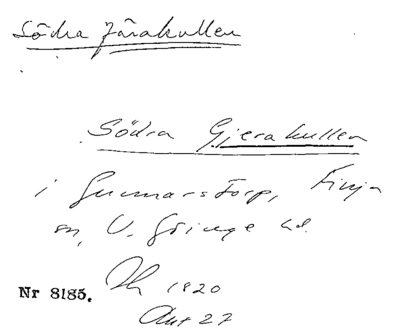 Södra Järakullen
Södra Gjerakullen
i Gunnarstorp, Finja
sn, V. Göinge hd.
Nr 8185. Th 1820
Aut 27